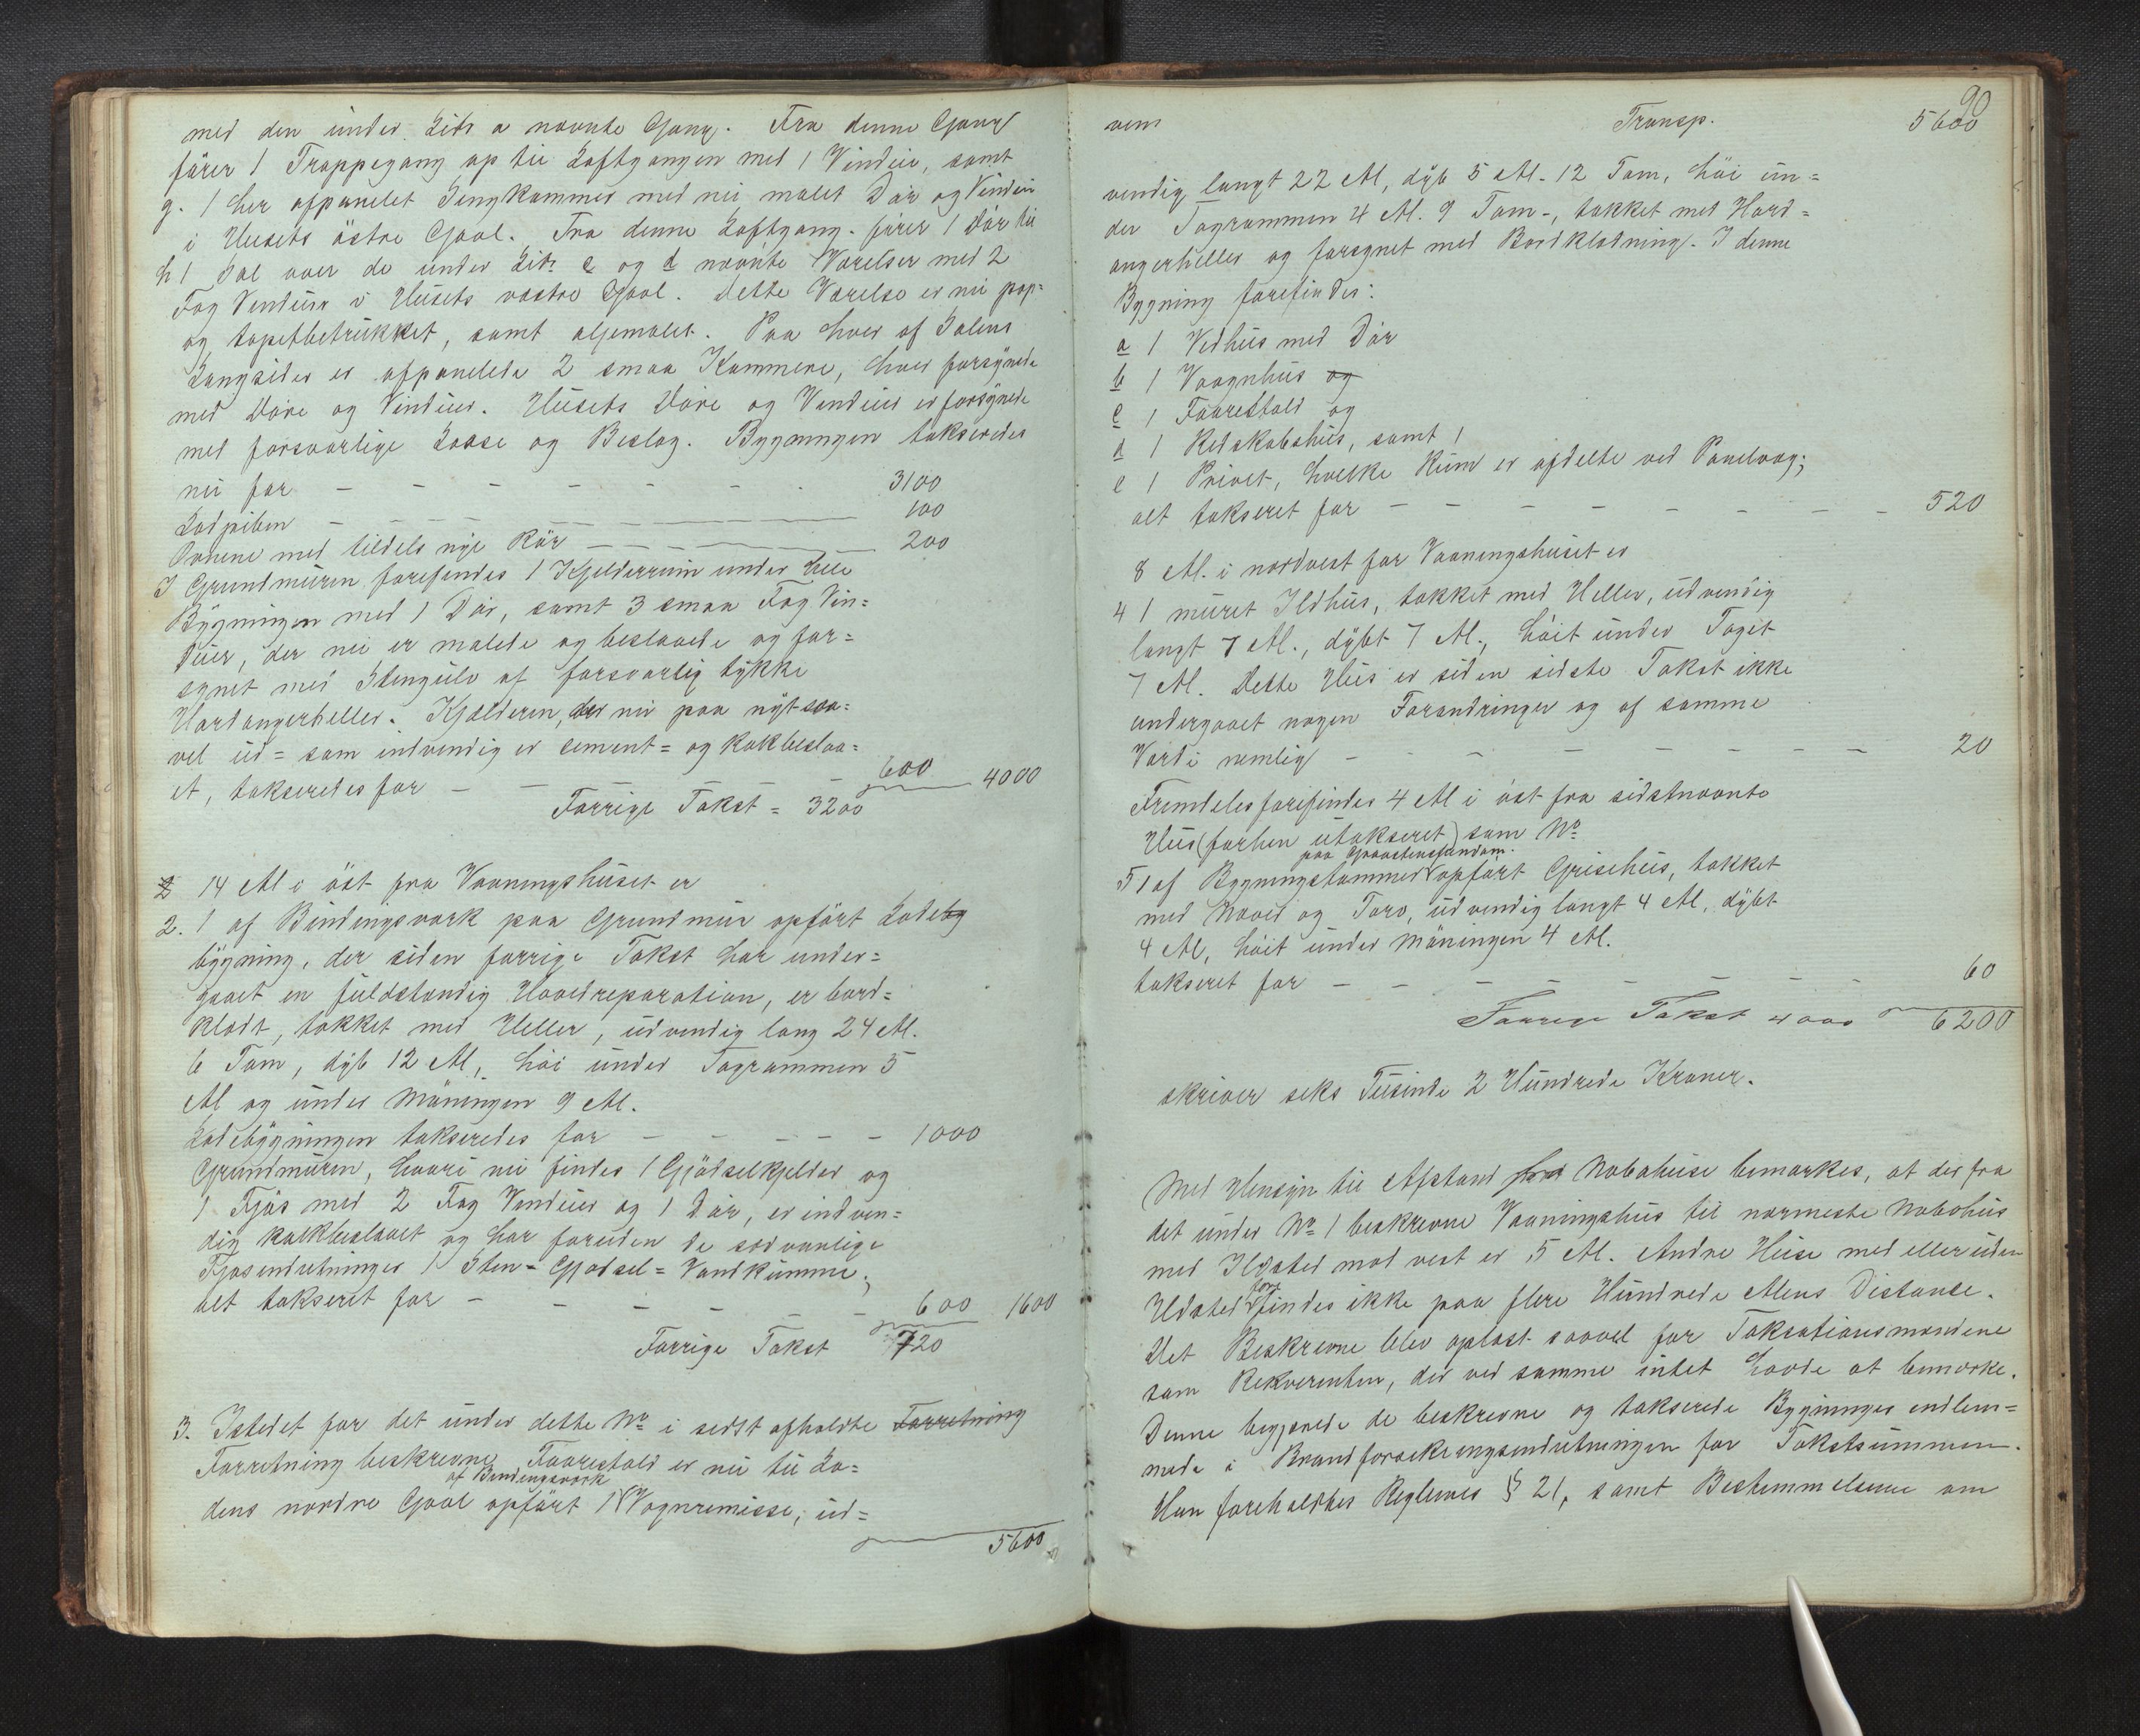 med den under Litr a nævnte Gang. Fra denne Gang
fører 1 Trappegang op til Loftgangen med 1 Vindue, samt
g. 1 her afpanelet Sengkammer med nu malet Dør og Vindue
i Husets østre Gavl. Fra denne Loftgang fører 1 Dør til
h 1 Sal over de under Litr. c og d nævnte Værelser med 2
Fag Vinduer i Husets vestre Gavl. Dette Værelse er nu pap=
og tapetbetrukket, samt oljemalet. Paa hver af Salens
Langsider er afpanelede 2 smaa Kammere, hver forsynede
med Døre og Vinduer. Husets Døre og Vinduer er forsynede
med forsvarlige Laase og Beslag. Bygningen takseredes
nu for — — — — — — 3100
Ladpiben — — — — 100
Ovnene med tildels nye Rør — — — 200
I Grundmuren forefindes 1 Kjelderrum under hele
Bygningen med 1 Dør, samt 3 smaa Fag Vin=
duer, der nu er malede og beslaaede og for=
synet med Stengulv af forsvarlig tykke
Hardangerheller. Kjelderen, der nu paa nyt saa=
vel ud= som indvendig er cement= og kalkbeslaa=
et, takseredes for — — — — — 600 4000
Forrige Takst = 3200
2 14 Al i øst fra Vaaningshuset er
2. 1 af Bindingsværk paa Grundmur opført Ladeby
bygning, der siden forrige Takst har under=
gaaet en fuldstændig Hovedreparation, er bord=
klædt, tækket med Heller, udvendig lang 24 Al.
6 Tom, dyb 12 Al, høi under Tagrammen 5
Al og under Møningen 9 Al.
Ladebygningen takseredes for — — — — — 1000
Grundmuren, hvori nu findes 1 Gjødselkjelder og
1 Fjøs med 2 Fag Vinduer og 1 Dør, er indven=
dig kalkbeslaaet og har foruden de sædvanlige
Fjøsindretninger 1 Sten=Gjødsel=Vandkumme,
alt takseret for — — — — — — 600 1600
Forrige Takst 720
3. Istedet for det under dette No i sidst afholdte Forretning
Forretning beskrevne Faarestald er nu til La=
af Bindingsværk
dens nordre Gavl opført 1 Vognremisse, ud=
5600
90
vem Transp. 5600
vendig langt 22 Al, dyb 5 Al. 12 Tom, høi un=
der Tagrammen 4 Al. 9 Tom-, tækket med Hard=
angerheller og forsynet med Bordklædning. I denne
Bygning forefindes:
a 1 Vedhus med Dør
b 1 Vaagnhus og
c 1 Faarestald og
d 1 Redskabshus, samt 1
e 1 Privet, hvilke Rum er afdelte ved Panelvæg;
alt takseret for — — — — — — — — 520
8 Al. i nordvest for Vaaningshuset er
4 1 muret Ildhus, tækket med Heller, udvendig
langt 7 Al., dybt 7 Al., høit under Taget
7 Al. Dette Hus er siden sidste Takst ikke
undergaaet nogen Forandringer og af samme
Værdi nemlig — — — — — — 20
Fremdeles forefindes 4 Al i øst fra sidstnævnte
Hus (forhen utakseret) som No
paa Graastensfundam.
5 1 af Bygningstømmer opført Grisehus, tækket
med Næver og Torv, udvendig langt 4 Al, dybt
4 Al, høit under Møningen 4 Al.
takseret for — — — — — — — 60
Forrige Takst 4000 6200
skriver seks Tusinde 2 Hundrede Kroner.
Med Hensyn til Afstand fra Nabohuse bemærkes, at der fra
det under No 1 beskrevne Vaaningshus til nærmeste Nabohus
med Ildsted mod vest er 5 Al. Andre Huse med eller uden
fore
Ildsted findes ikke paa flere Hundrede Alens Distance.
Det Beskrevne blev oplæst saavel for Taksationsmændene
som Rekvirenten, der ved samme intet havde at bemærke.
Denne begjærede de beskrevne og takserede Bygninger indlem=
mede i Brandforsikringsindretningen for Takstsummen.
Han foreholdtes Reglernes § 21, samt Bestemmelserne om